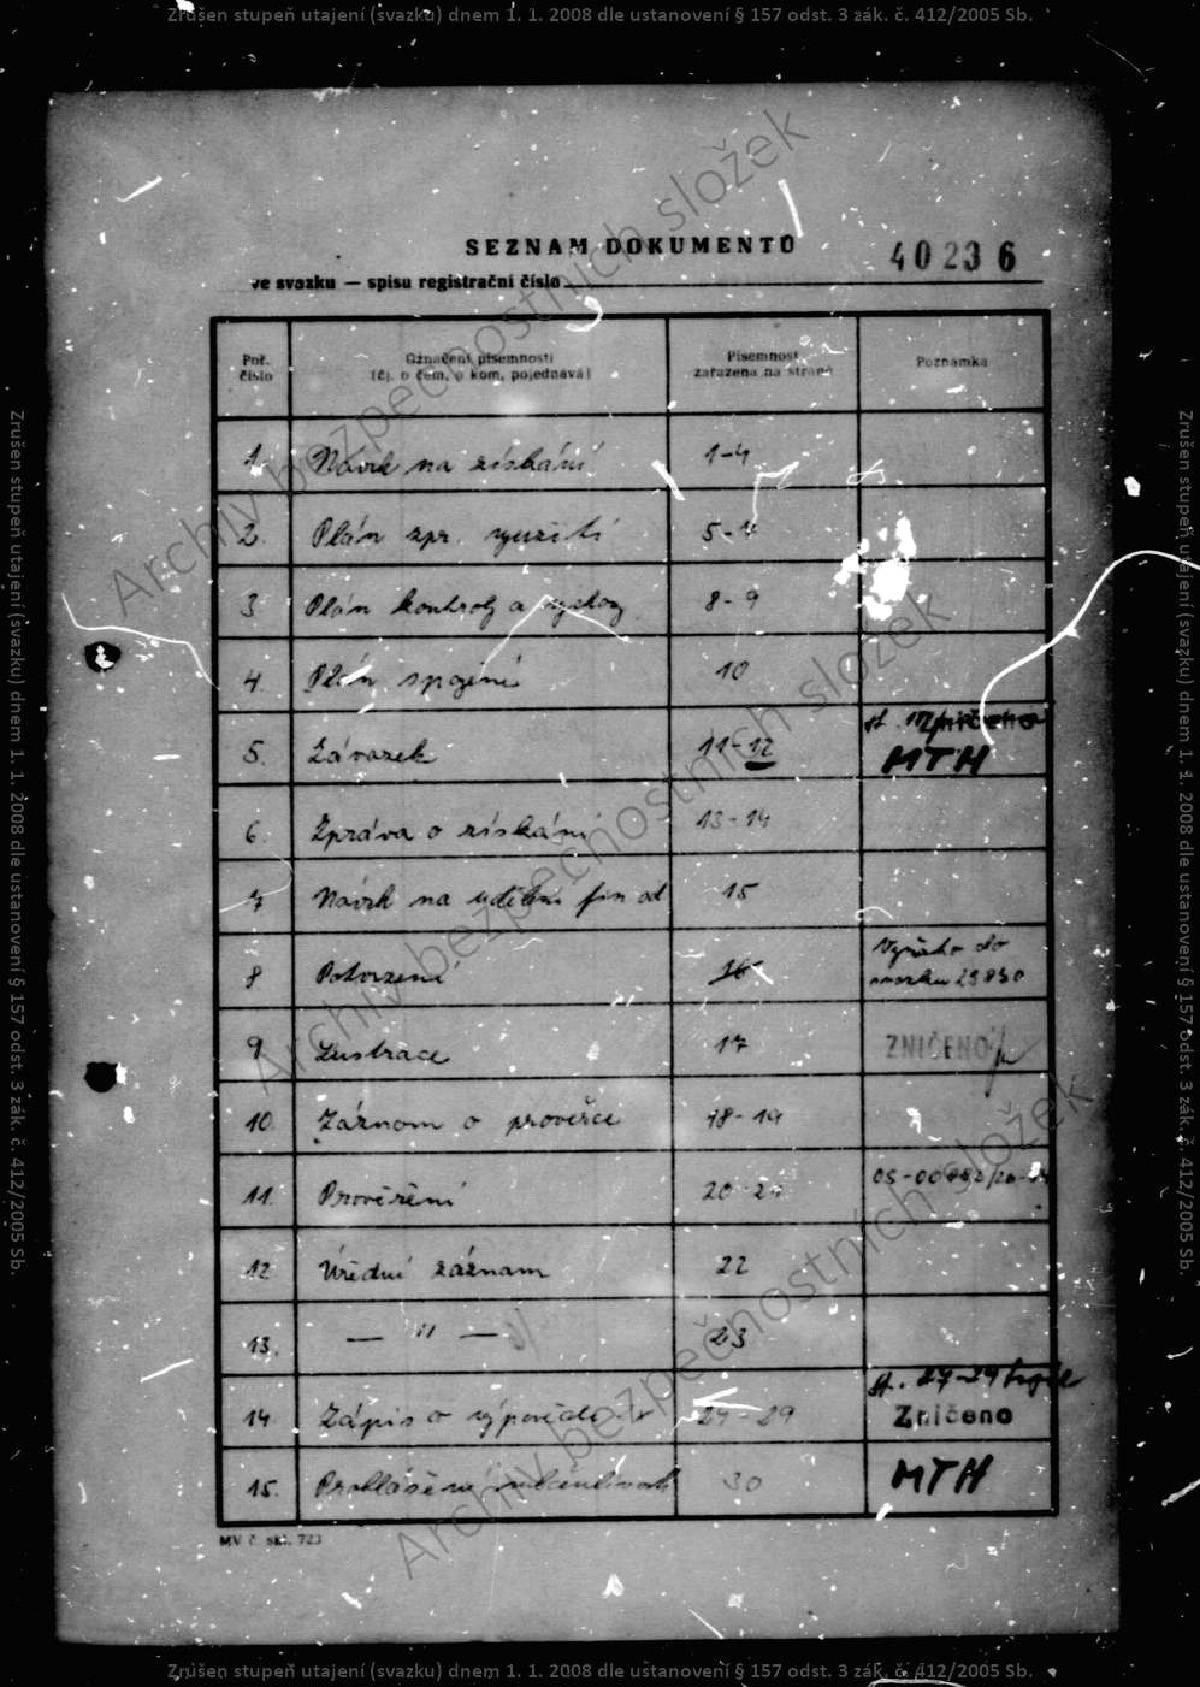 Zrušen stupeň utajení (svazku) dnem 1. 1. 2008 dle ustanovení § 157 odst. 3 zák. č. 412/2005 Sb.
SEZNAM DOKUMENTŮ
40236
ve svazku — spisu registrační číslo
Poř. číslo
Označení písemnosti
(čj. o čem, o kom, pojednává)
Písemnost
zařazena na straně
Poznámka
1. Návrh na získání 1-4
2. Plán zpr. využití 5-7
3 Plán kontroly a výchovy 8-9
4. Plán spojení 10
5. Závazek 11-12 MTH
6. Zpráva o získání 13-14
7 Návrh na udělení fin od 15
8 Potvrzení 16 Vyňato do
svazku 25830
9 Lustrace 17 ZNIČENO
10. Záznam o prověrce 18-19
11. Prověření 20-21
12 Úřední záznam 22
13. — " — 23
14 Zápis o výpovědi 24-29 Zničeno
15. Prohlášení 30 MTH
MV č. skl. 723
Zrušen stupeň utajení (svazku) dnem 1. 1. 2008 dle ustanovení § 157 odst. 3 zák. č. 412/2005 Sb.
Zrušen stupeň utajení (svazku) dnem 1. 1. 2008 dle ustanovení § 157 odst. 3 zák. č. 412/2005 Sb.
Zrušen stupeň utajení (svazku) dnem 1. 1. 2008 dle ustanovení § 157 odst. 3 zák. č. 412/2005 Sb.
Archiv bezpečnostních složek
Archiv bezpečnostních složek
Archiv bezpečnostních složek